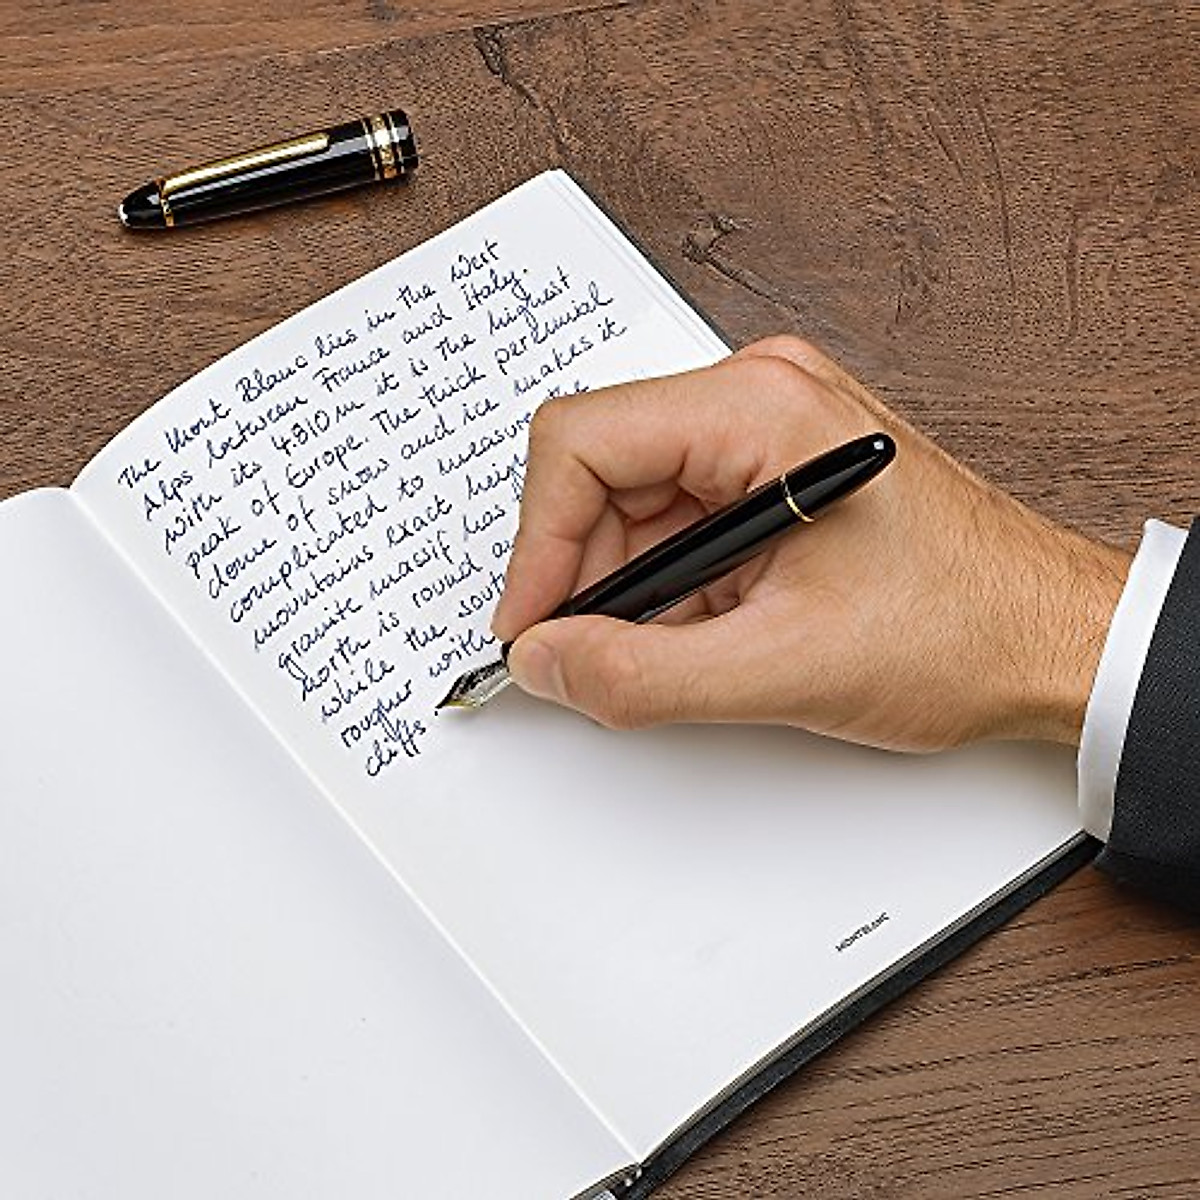 The Mont Blanc lies in the West
Alps between France and Italy.
With its 4.810 m it is the highest
peak of Europe. The thick perennial
dome of snow and ice makes it
complicated to measure the
mountains exact heig
granite massif has
north is round a
while the sout
rougher with
cliffs.
MONTBLANC